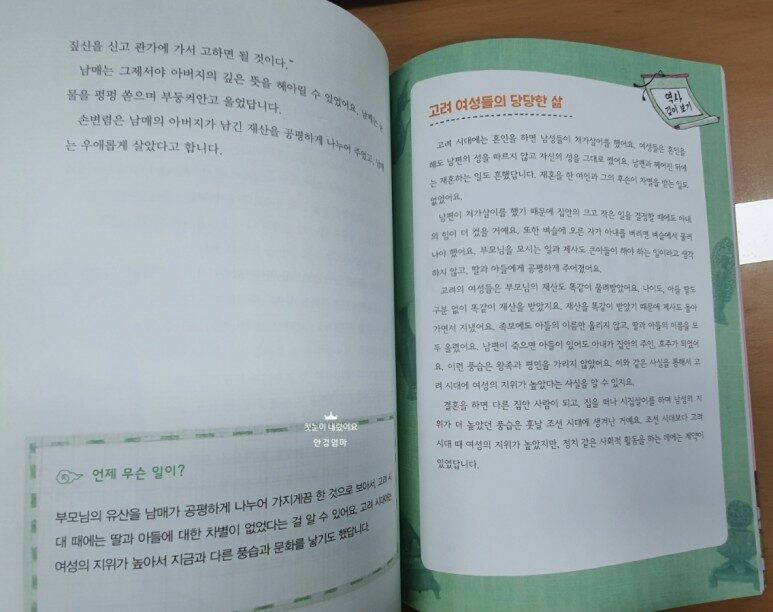 짚신을 신고 관가에 가서 고하면 될 것이다.”
남매는 그제서야 아버지의 깊은 뜻을 헤아릴 수 있었어요. 남매는 눈
물을 펑펑 쏟으며 부둥켜안고 울었답니다.
손변렴은 남매의 아버지가 남긴 재산을 공평하게 나누어 주었고, 남매
는 우애롭게 살았다고 합니다.
첫눈이 내렸어요
안경엄마
언제 무슨 일이?
부모님의 유산을 남매가 공평하게 나누어 가지게끔 한 것으로 보아서, 고려 시
대 때에는 딸과 아들에 대한 차별이 없었다는 걸 알 수 있어요. 고려 시대에는
여성의 지위가 높아서 지금과 다른 풍습과 문화를 낳기도 했답니다.
역사
깊이 보기
고려 여성들의 당당한 삶
고려 시대에는 혼인을 하면 남성들이 처가살이를 했어요. 여성들은 혼인을
해도 남편의 성을 따르지 않고 자신의 성을 그대로 썼어요. 남편과 헤어진 뒤에
는 재혼하는 일도 흔했답니다. 재혼을 한 여인과 그의 후손이 차별을 받는 일도
없었어요.
남편이 처가살이를 했기 때문에 집안의 크고 작은 일을 결정할 때에도 아내
의 힘이 더 컸을 거예요. 또한 벼슬에 오른 자가 아내를 버리면 벼슬에서 물러
나야 했어요. 부모님을 모시는 일과 제사도 큰아들이 해야 하는 일이라고 생각
하지 않고, 딸과 아들에게 공평하게 주어졌어요.
고려의 여성들은 부모님의 재산도 똑같이 물려받았어요. 나이도, 아들 딸도
구분 없이 똑같이 재산을 받았지요. 재산을 똑같이 받았기 때문에 제사도 돌아
가면서 지냈어요. 족보에도 아들의 이름만 올리지 않고, 딸과 아들의 이름을 모
두 올렸어요. 남편이 죽으면 아들이 있어도 아내가 집안의 주인, 호주가 되었어
요. 이런 풍습은 왕족과 평민을 가리지 않았어요. 이와 같은 사실을 통해서 고
려 시대에 여성의 지위가 높았다는 사실을 알 수 있지요.
결혼을 하면 다른 집안 사람이 되고, 집을 떠나 시집살이를 하며 남성의 지
위가 더 높았던 풍습은 훗날 조선 시대에 생겨난 거예요. 조선 시대보다 고려
시대 때 여성의 지위가 높았지만, 정치 같은 사회적 활동을 하는 데에는 제약이
있었답니다.